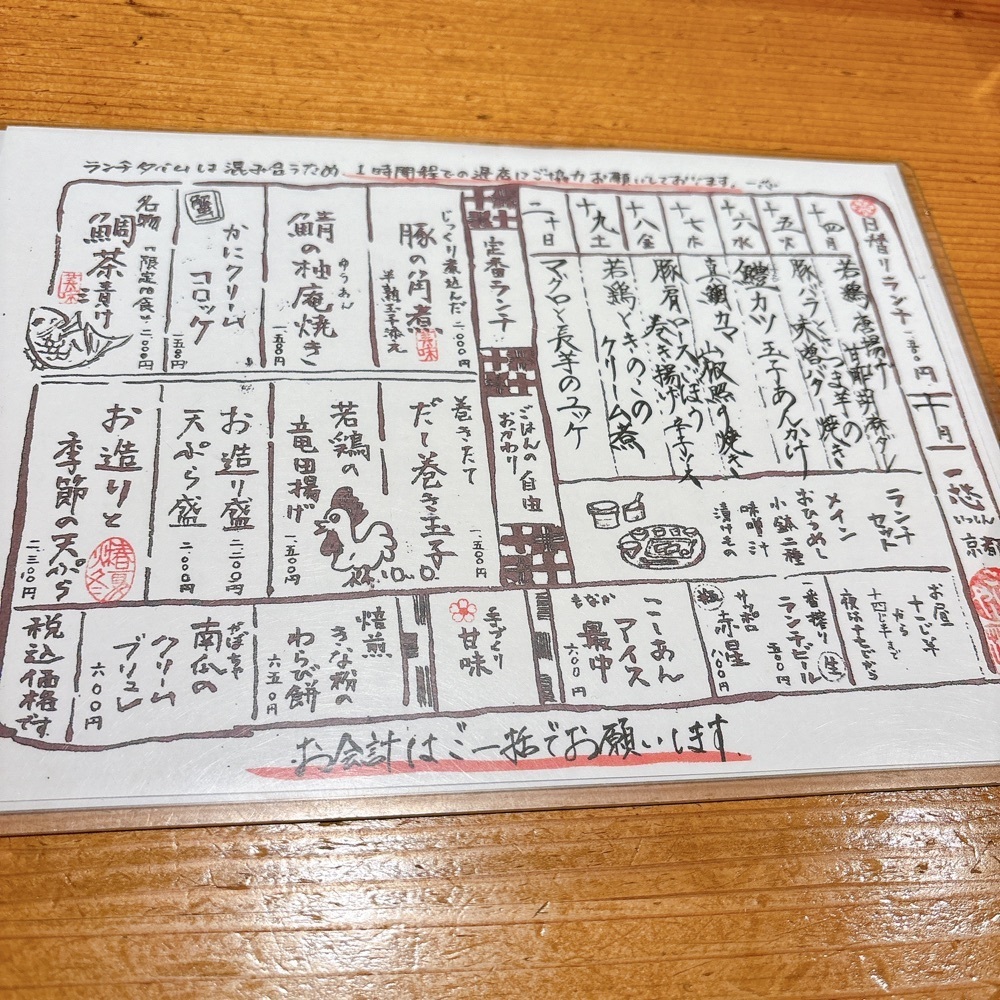 ランチタイムは混み合うため 1時間程での退店にご協力お願いしております。
日替りランチ
十月
一心
いっしん
京都
十四月
若鶏唐揚げ
十五火
豚バラとさつま芋の
味噌バター焼き
十六水
鱧カツ 玉子あんかけ
十七木
真鯛カマ 山椒照り焼き
十八金
豚肩ロースごぼう
巻き揚げ
十九土
若鶏ときのこの
クリーム煮
二十日
マグロと長芋のユッケ
ランチ
セット
メイン
おひつめし
小鉢二種
味噌汁
漬けもの
定番ランチ
ごはんの
おかわり
自由
じっくり煮込んだ
豚の角煮
半熟玉子添え
二、〇〇〇円
鯖の柚庵焼き
ゆうあん
一、五〇〇円
蟹
かにクリーム
コロッケ
一、五〇〇円
名物
鯛茶漬け
「限定八食」
二、〇〇〇円
巻きたて
だし巻き玉子
一、五〇〇円
若鶏の
竜田揚げ
一、五〇〇円
お造り盛
二、二〇〇円
天ぷら盛
二、〇〇〇円
お造りと
季節の天ぷら
二、三〇〇円
お昼
十一じ半
から
十四じ半まで
夜は五じから
一番搾り
生
ランチビール
五〇〇円
サッポロ
赤星
八〇〇円
こしあん
アイス
もなか
最中
六〇〇円
手づくり
甘味
焙煎
きな粉の
わらび餅
六五〇円
かぼちゃ
南瓜の
クリーム
ブリュレ
六〇〇円
税込価格です
お会計はご一括でお願いします